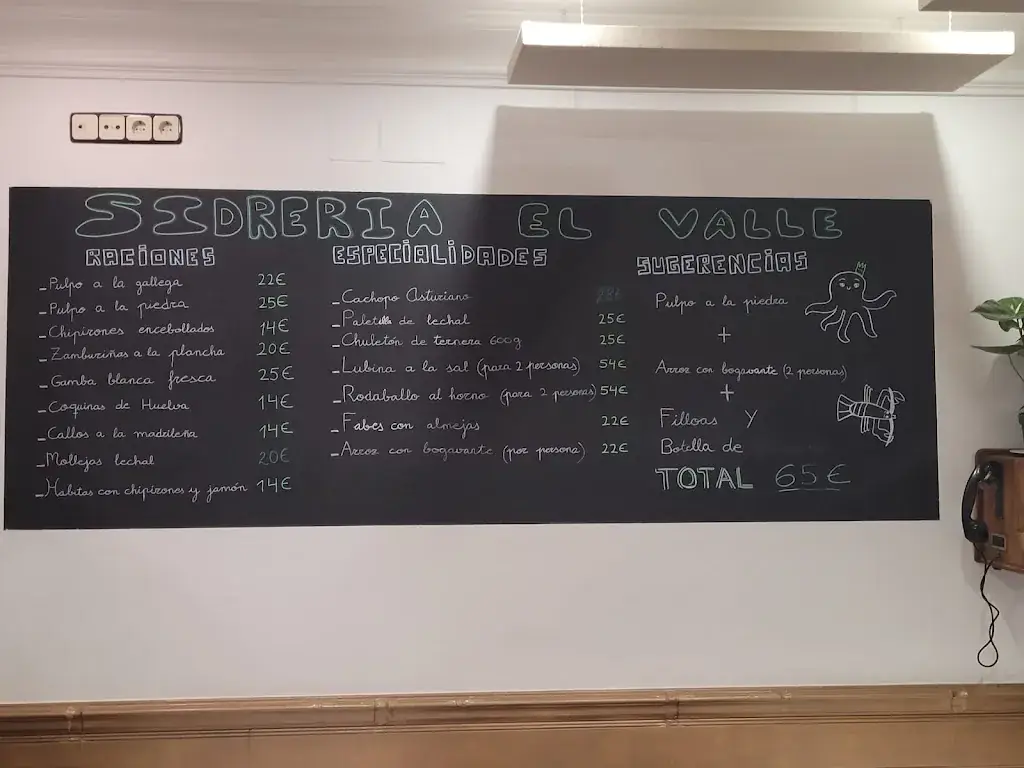 SIDRERIA EL VALLE
RACIONES
_Pulpo a la gallega 22€
_Pulpo a la piedra 25€
_Chipirones encebollados 14€
_Zamburiñas a la plancha 20€
_Gamba blanca fresca 25€
_Coquinas de Huelva 14€
_Callos a la madrileña 14€
_Mollejas lechal 20€
_Habitas con chipirones y jamón 14€
ESPECIALIDADES
_Cachopo Asturiano
_Paletilla de lechal 25€
_Chuletón de ternera 600g 25€
_Lubina a la sal (para 2 personas) 54€
_Rodaballo al horno (para 2 personas) 54€
_Fabes con almejas 22€
_Arroz con bogavante (por persona) 22€
SUGERENCIAS
Pulpo a la piedra
+
Arroz con bogavante (2 personas)
+
Filloas y
Botella de
TOTAL 65€